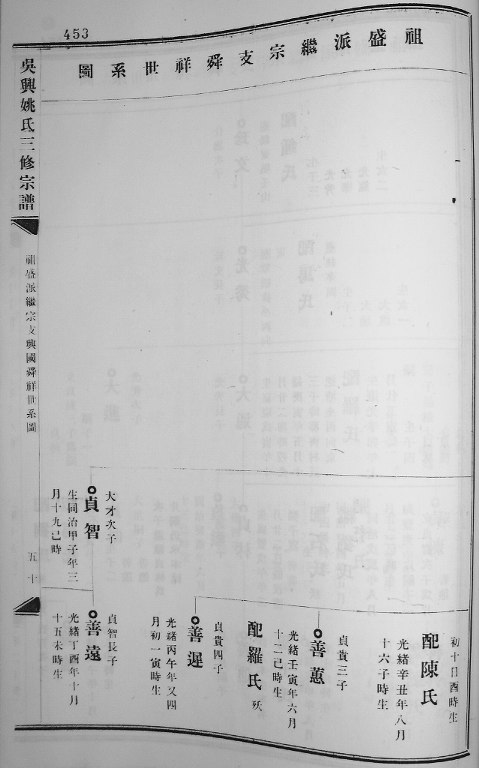 453
祖盛派繼宗支舜祥世系圖
初十日酉時生
配陳氏
光緒辛丑年八月
十六子時生
貞賞三子
善蕙
光緒壬寅年六月
十二己時生
配羅氏 殀
貞賞四子
善遲
光緒丙午年又四
月初一寅時生
大才次子
貞智
生同治甲子年三
月十九己時
貞智長子
善遠
光緒丁酉年十月
十五未時生
吳興姚氏三修宗譜
祖盛派繼宗支興國舜祥世系圖
五十